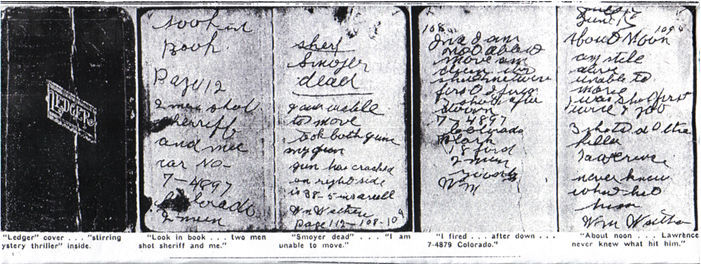 LEDGER
Look in
Book
Page 112
2 men shot
sherriff
and me
car No-
7-4897
Colorado
2 men
sherf
Smoyer
dead
I am unable
to move
took both guns
my gun
gun has cracked
on right side
is 38-5 in barrell
Wm Walther
Page 112-108-109
108
and am
not able to
move am
first I fired
3 shots after
down
7-4897
Colorado
Black
V8 ford
2 men
Wm
June 12
109
About Noon
am still
alive
unable to
move
I was shot first
3 shots did the
killer
Lawrence
never knew
what hit
him
Wm Walther
"Ledger" cover . . . "stirring
ystery thriller" inside.
"Look in book . . . two men
shot sheriff and me."
"Smoyer dead" . . . "I am
unable to move."
"I fired . . . after down . . .
7-4879 Colorado."
"About noon . . . Lawrence
never knew what hit him."